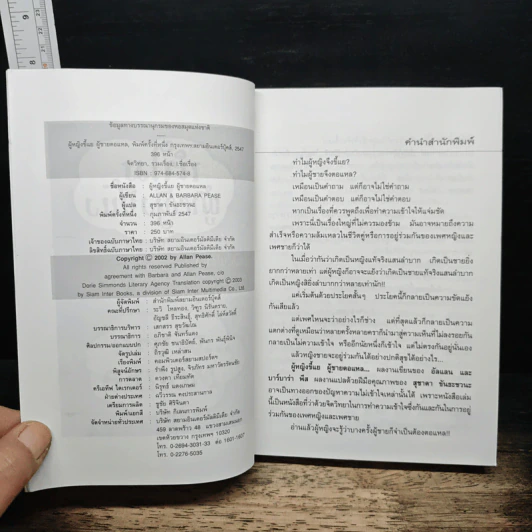 ข้อมูลทางบรรณานุกรมของหอสมุดแห่งชาติ
ผู้หญิงขี้แย ผู้ชายตอแหล, พิมพ์ครั้งที่หนึ่ง กรุงเทพฯ:สยามอินเตอร์บุ๊คส์, 2547
396 หน้า
จิตวิทยา, รวมเรื่อง, I.ชื่อเรื่อง
ISBN : 974-684-574-9
ชื่อหนังสือ : ผู้หญิงขี้แย ผู้ชายตอแหล
ผู้เขียน : ALLAN & BARBARA PEASE
ผู้แปล : สุชาดา ขันธรชวนะ
พิมพ์ครั้งที่หนึ่ง : กุมภาพันธ์ 2547
จำนวน : 396 หน้า
ราคา : 250 บาท
เจ้าของฉบับภาษาไทย : บริษัท สยามอินเตอร์มัลติมีเดีย จำกัด
ลิขสิทธิ์ฉบับภาษาไทย : บริษัท สยามอินเตอร์มัลติมีเดีย จำกัด
Copyright © 2002 by Allan Pease.
All rights reserved Published by
agreement with Barbara and Allan Pease, c/o
Dorie Simmonds Literary Agency Translation copyright © 2003
by Siam Inter Books, a division of Siam Inter Multimedia Co., Ltd.
ผู้จัดพิมพ์ : สำนักพิมพ์สยามอินเตอร์บุ๊คส์
คณะที่ปรึกษา :
บรรณาธิการบริหาร :
บรรณาธิการ :
ศิลปกรรมออกแบบปก :
จัดรูปเล่ม :
เรียงพิมพ์ : คอมพิวเตอร์สยามสปอร์ตฯ
พิสูจน์อักษร :
การตลาด :
ครีเอทีฟ ไดเรกเตอร์ :
ฝ่ายต่างประเทศ :
เตรียมการผลิต :
พิมพ์นอกสี :
จัดจำหน่ายทั่วประเทศ : บริษัท สยามอินเตอร์มัลติมีเดีย จำกัด
459 ลาดพร้าว 48
เขตห้วยขวาง กรุงเทพฯ 10320
โทร. 0-2694-3031-33 ต่อ 1601-1607
โทร. 0-2276-5035
คำนำสำนักพิมพ์
ทำไมผู้หญิงจึงขี้แย?
ทำไมผู้ชายจึงตอแหล?
เหมือนเป็นคำถาม แต่ก็อาจไม่ใช่คำถาม
เหมือนเป็นคำตอบ แต่ก็อาจไม่ใช่คำตอบ
หากเป็นเรื่องที่ควรพูดถึงเพื่อทำความเข้าใจให้แจ่มชัด
เพราะนี่เป็นเรื่องใหญ่ที่ไม่ควรมองข้าม มันอาจหมายถึงความ
สำเร็จหรือความล้มเหลวในชีวิตคู่หรือการอยู่ร่วมกันของเพศหญิงและ
เพศชายก็ว่าได้
ในเมื่อว่ากันว่าเกิดเป็นหญิงแท้จริงแสนลำบาก เกิดเป็นชายยิ่ง
ยากกว่าหลายเท่า แต่ผู้หญิงก็อาจจะแย้งว่าเกิดเป็นชายแท้จริงแสนลำบาก
เกิดเป็นหญิงสิยิ่งลำบากกว่าหลายเท่านัก!!
แค่เริ่มต้นด้วยประโยคสั้นๆ ประโยคนี้ก็กลายเป็นความขัดแย้ง
กันเสียแล้ว
แต่เพศไหนจะว่าอย่างไรก็ช่าง แต่ที่สุดแล้วก็กลายเป็นความ
แตกต่างที่ดูเหมือนว่าหลายครั้งหลายคราก็นำมาสู่ความเห็นที่ไม่ลงรอยกัน
กลายเป็นไม่ความเข้าใจ หรืออีกนัยหนึ่งก็เข้าใจ แต่ไม่ตรงกันอยู่นั่นเอง
แล้วผู้หญิงชายจะอยู่ร่วมกันได้อย่างปกติสุขได้อย่างไร...
ผู้หญิงขี้แย ผู้ชายตอแหล... ผลงานเขียนของ อัลแลน และ
บาร์บาร่า พีส ผลงานแปลด้วยฝีมือคุณภาพของ สุชาดา ขันธรชวนะ
อาจเป็นทางออกของปัญหาความไม่เข้าใจเหล่านั้นได้ เพราะหนังสือเล่ม
นี้เป็นหนังสือที่ว่าด้วยจิตวิทยาในการทำความเข้าใจซึ่งกันและกันในการอยู่
ร่วมกันของเพศหญิงและเพศชาย
อ่านแล้วผู้หญิงจะรู้ว่าบางครั้งผู้ชายก็จำเป็นต้องตอแหล!!